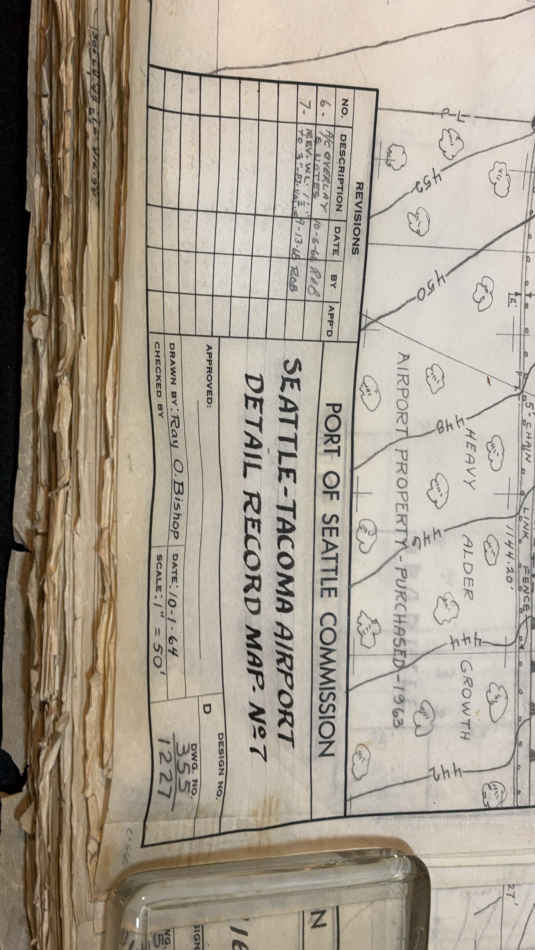 452
450
448
445
444
442
5' CHAIN LINK FENCE
1144.20'
HEAVY ALDER GROWTH
AIRPORT PROPERTY-PURCHASED-1963
REVISIONS
NO. DESCRIPTION DATE BY APP'D
6- A/C OVERLAY 10-6-66 ROB
& NOTES
7- REV. W.L. 9-13-68 ROB
PORT OF SEATTLE COMMISSION
SEATTLE-TACOMA AIRPORT
DETAIL RECORD MAP- Nº 7
APPROVED:
DESIGN NO.
D
DRAWN BY: Ray O. Bishop DATE: 10-1-64
DWG. NO.
355
1227
CHECKED BY
SCALE: 1" = 50'
27'
N
16